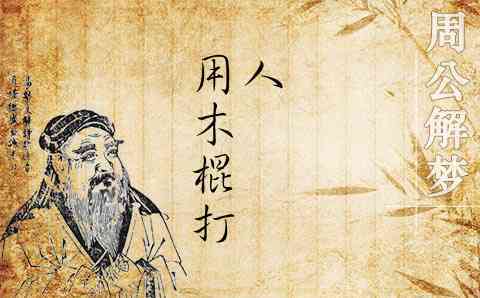 周公解梦
人
用木棍打